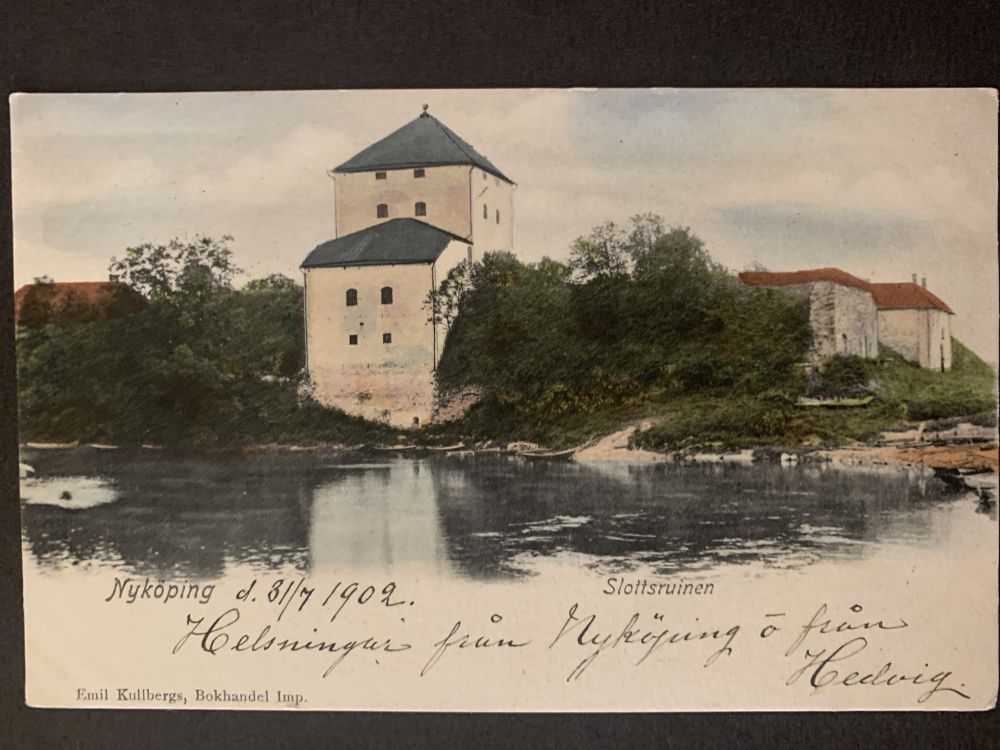 Nyköping d. 31/7 1902. Slottsruinen
Helsningar från Nyköping ō från
Hedvig.
Emil Kullbergs, Bokhandel Imp.